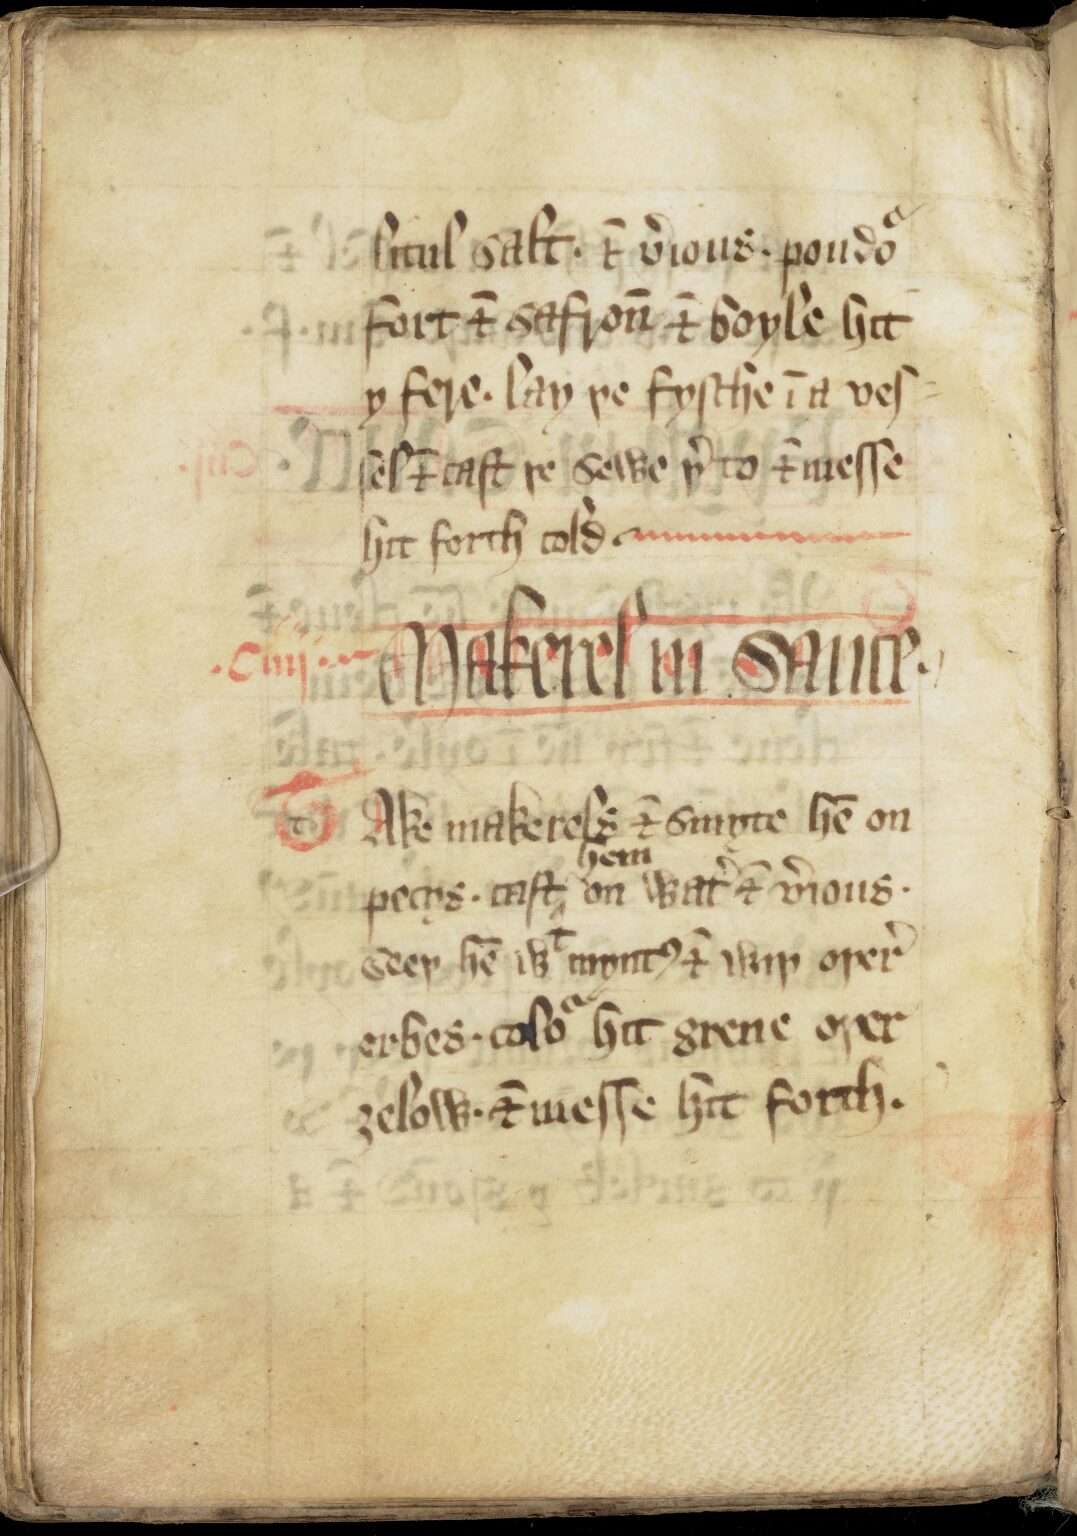 litul salt· & v̉ious· poudoᵃ
fort & safron̄ & boyle hit
y fere· lay þe fysche ī a ves-
sel & cast þe sewe þ̉ to & messe
hit forth cold
·Ciiij· Makerel in Sauce·
t Ake makerels & smyte hē on
pecys· cast hem on wat̉ & v̉ious·
seeþ hē wᵗ mynt⁹ & wiþ oþer̉
erbes· coloᵃ hit grene oþer
ȝelow· & messe hit forth·